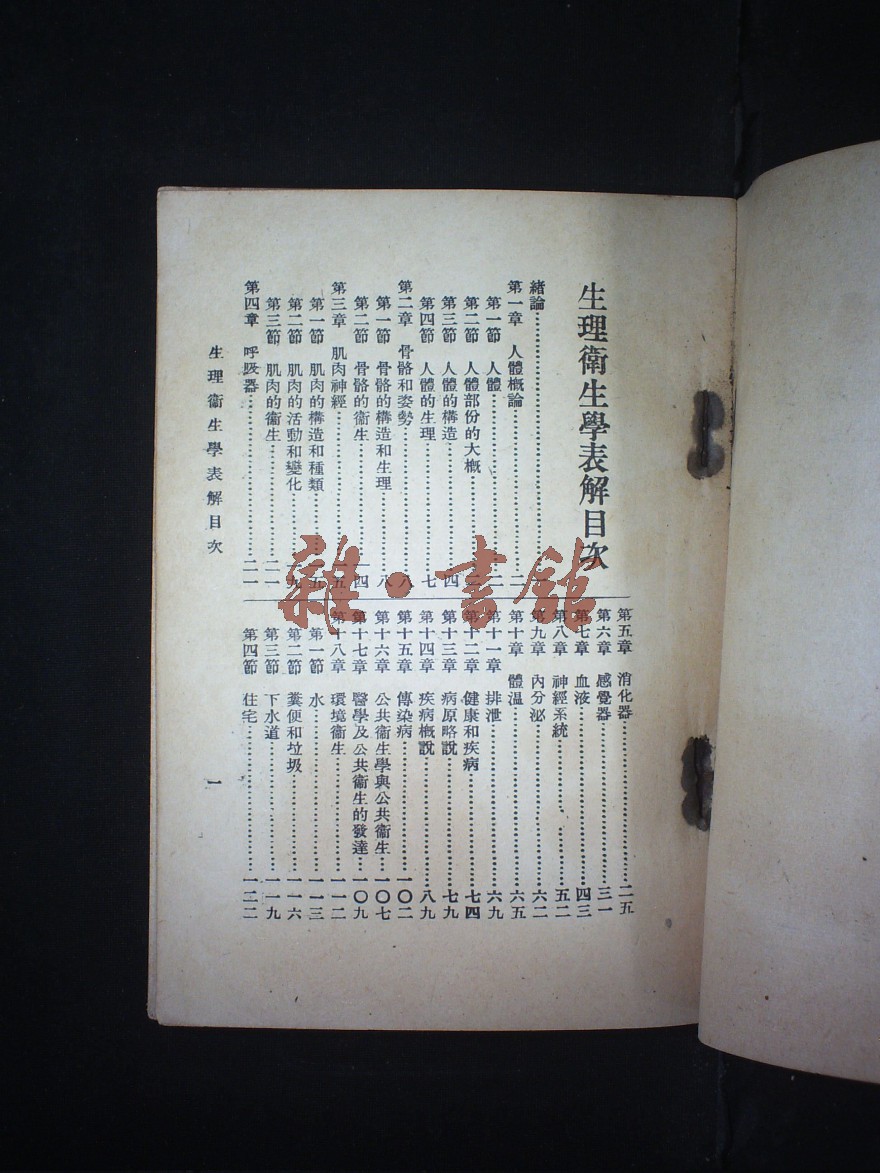 生理衛生學表解目次
緒論……………………………一
第一章 人體概論……………………二
第一節 人體……………………二
第二節 人體部份的大概……………………二
第三節 人體的構造……………………四
第四節 人體的生理……………………七
第二章 骨骼和姿勢……………………八
第一節 骨骼的構造和生理……………………八
第二節 骨骼的衞生……………………一四
第三章 肌肉神經……………………一五
第一節 肌肉的構造和種類……………………一五
第二節 肌肉的活動和變化……………………一九
第三節 肌肉的衞生……………………二一
第四章 呼吸器……………………二一
第五章 消化器……………………二五
第六章 感覺器……………………三一
第七章 血液……………………四三
第八章 神經系統……………………五二
第九章 內分泌……………………六二
第十章 體溫……………………六五
第十一章 排泄……………………六九
第十二章 健康和疾病……………………七四
第十三章 病原略說……………………七九
第十四章 疾病概說……………………八九
第十五章 傳染病……………………一〇二
第十六章 公共衞生學與公共衞生……………………一〇七
第十七章 醫學及公共衞生的發達……………………一〇九
第十八章 環境衞生……………………一一二
第一節 水……………………一一三
第二節 糞便和垃圾……………………一一六
第三節 下水道……………………一一九
第四節 住宅……………………一二二
生理衞生學表解目次
一
雜·書館